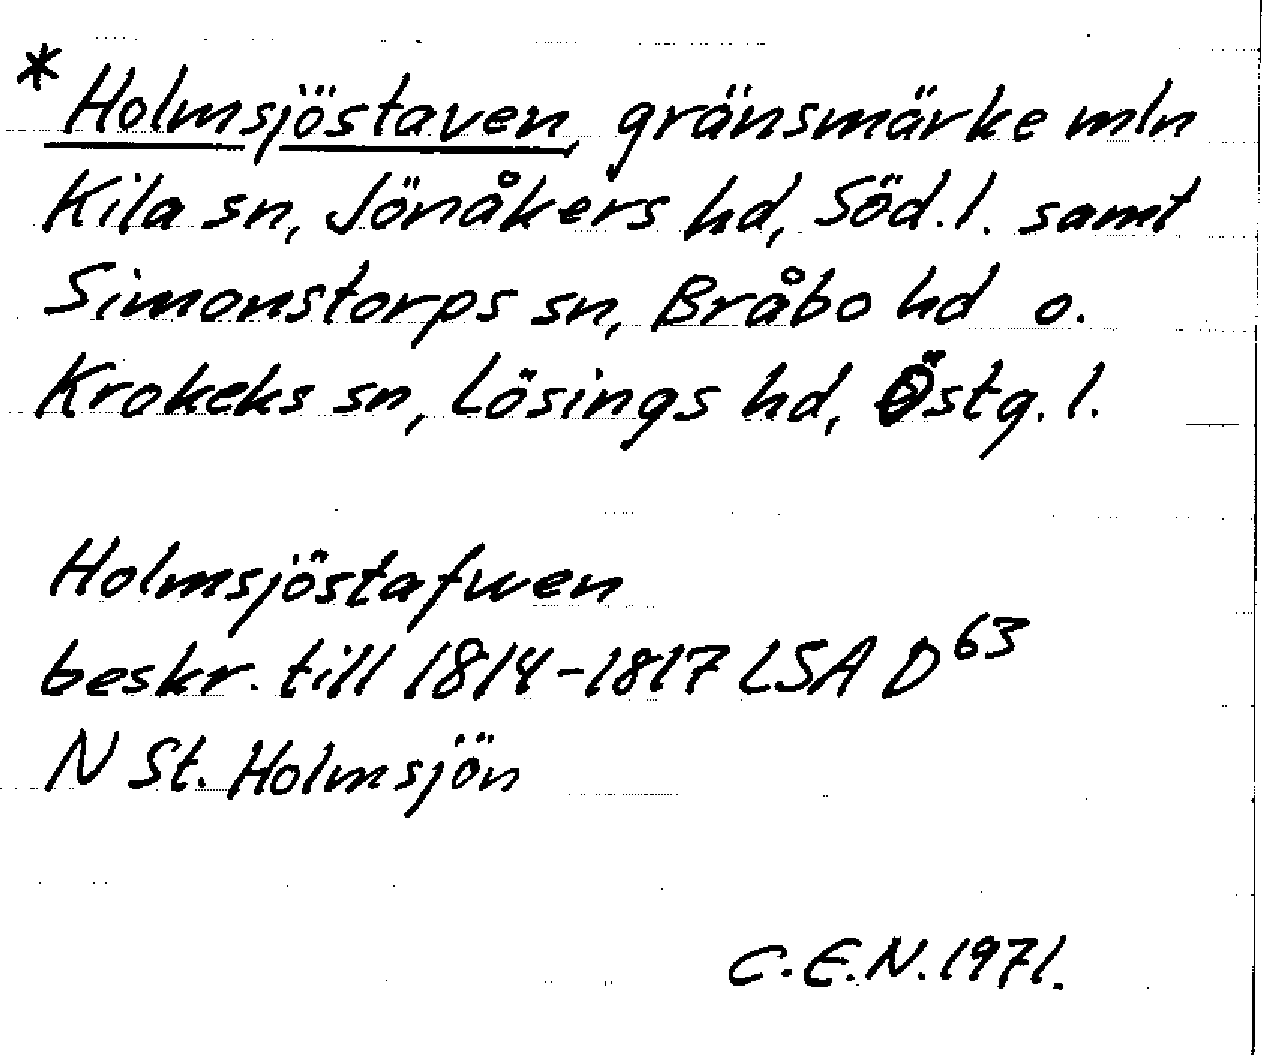 * Holmsjöstaven, gränsmärke mln
Kila sn, Jönåkers hd, Söd. l. samt
Simonstorps sn, Bråbo hd o.
Krokeks sn, Lösings hd, Östg. l.
Holmsjöstafwen
beskr. till 1814-1817 LSA D 63
N St. Holmsjön
C.E.N. 1971.